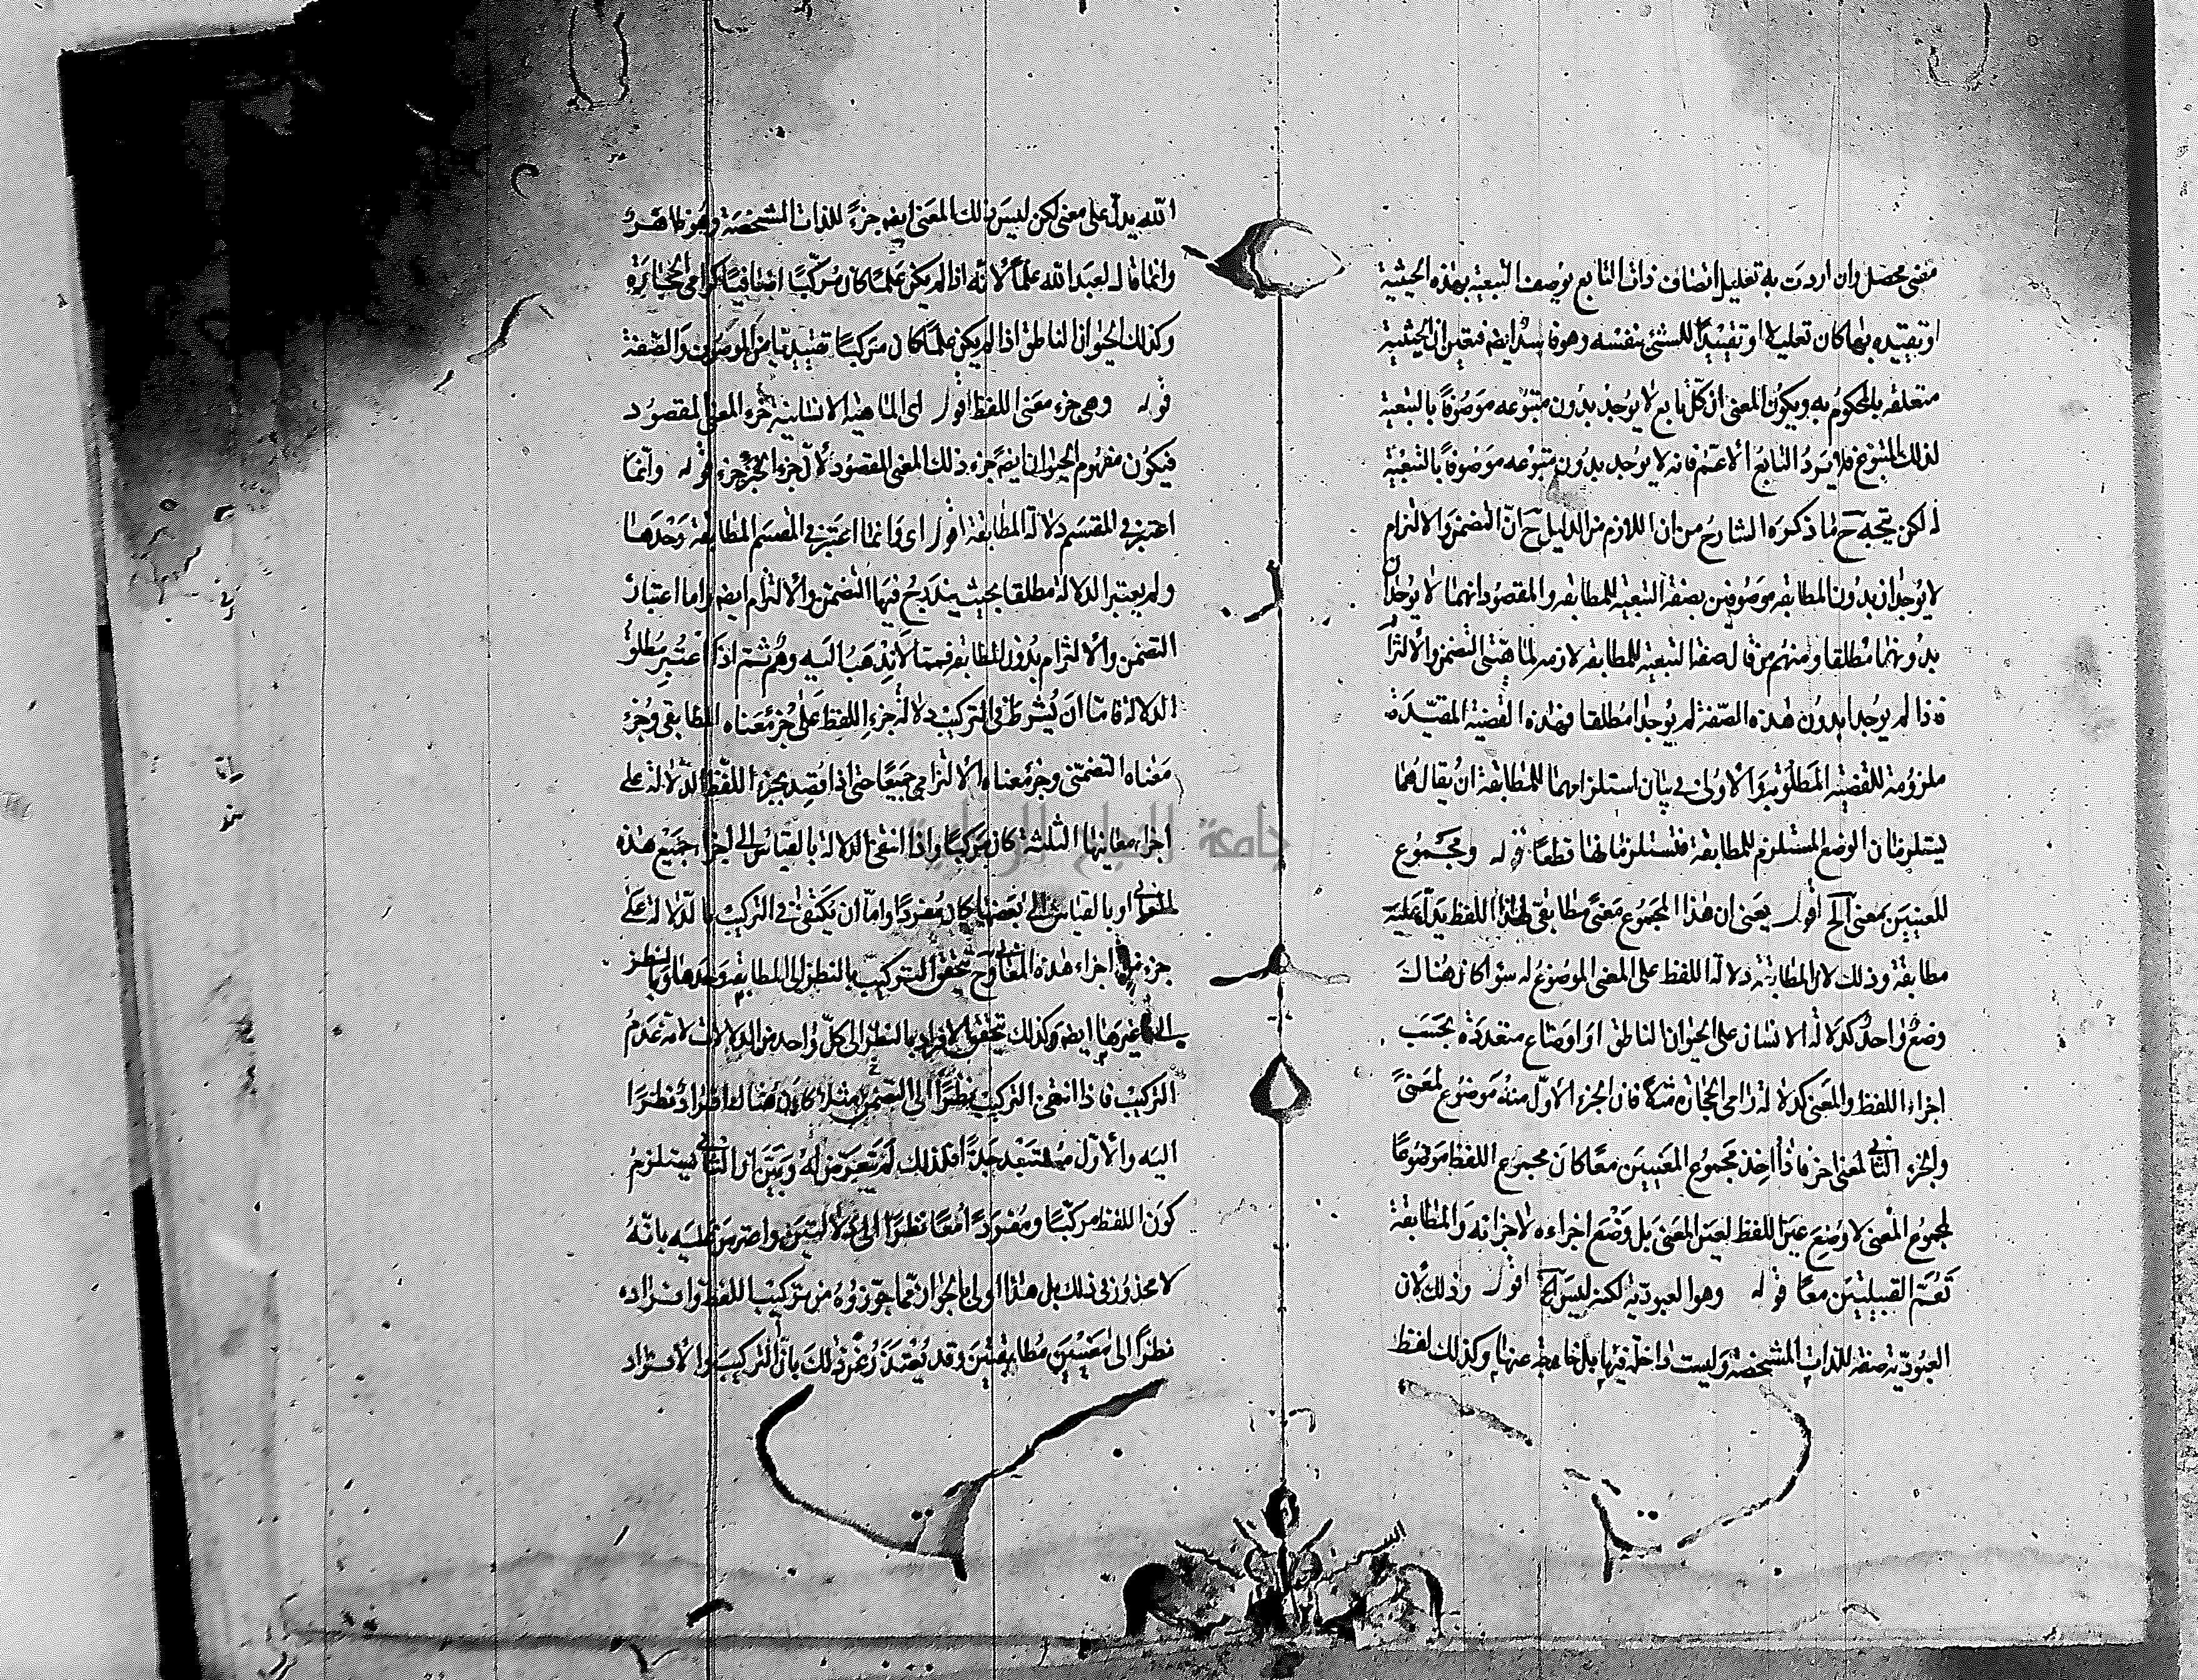 معنى محصل وان اردت به تعليل اتصاف ذات التابع بوصف التبعية بهذه الحيثية
او تقييده بها كان تعليلا او تقييدا للشئ بنفسه وهو فاسد ايضا فتعين ان الحيثية
متعلقة بالمحكوم به ويكون المعنى ان كل تابع لا يوجد بدون متبوعه موصوفا بالتبعية
لذلك المتبوع فلا يرد التابع الاعم فانه لا يوجد بدون متبوعه موصوفا بالتبعية
له لكن يتجه ح ما ذكره الشارح من ان اللازم من الدليل ح ان التضمن والالتزام
لا يوجدان بدون المطابقة موصوفين بصفة التبعية للمطابقة والمقصود انهما لا يوجدان
بدونهما مطلقا ومنهم من قال صفة التبعية للمطابقة لازمة لماهيتى التضمن والالتزا
فاذا لم يوجدا بدون هذه الصفة لم يوجدا مطلقا فهذه القضية المقيدة
ملزومة للقضية المطلوبة والاولى فى بيان استلزامهما للمطابقة ان يقال هما
يستلزمان الوضع المستلزم للمطابقة فيستلزمانها قطعا قوله ومجموع
المعنيين بمعنى الخ اقول يعنى ان هذا المجموع معنى مطابقى لهذا اللفظ يدل عليه
مطابقة وذلك لان المطابقة دلالة اللفظ على المعنى الموضوع له سواء كان هناك
وضع واحد كدلالة الانسان على الحيوان الناطق او اوضاع متعددة بحسب
اجزاء اللفظ والمعنى كدلالة رامى الحجارة مثلا فان الجزء الاول منه موضوع لمعنى
والجزء الثانى لمعنى اخر فاذا اخذ مجموع المعنيين معا كان مجموع اللفظ موضوعا
لمجموع المعنى لا وضع عين اللفظ لعين المعنى بل وضع اجزاءه لاجزائه والمطابقة
تعم القبيلتين معا قوله وهو العبودية لكنه ليس الخ اقول وذلك لان
العبودية صفة للذات المشخصة وليست داخلة فيها بل خارجة عنها وكذلك لفظ
الله يدل على معنى لكن ليس ذلك المعنى ايضا جزءا للذات المشخصة وهو ظاهر
وانما قال لعبد الله علما لانه اذا لم يكن علما كان مركبا اضافيا كرامى الحجارة
وكذلك الحيوان الناطق اذا لم يكن علما كان مركبا تقييديا من الموصوف والصفة
قوله وهى جزء معنى اللفظ اقول اى الماهية الانسانية جزء المعنى المقصود
فيكون مفهوم الحيوان ايضا جزء ذلك المعنى المقصود لان جزء الجزء جزء قوله وانما
اعتبر فى المقسم دلالة المطابقة اقول اى وانما اعتبر فى المقسم المطابقة وحدها
ولم يعتبر الدلالة مطلقا بحيث يندرج فيها التضمن والالتزام ايضا واما اعتبار
التضمن والالتزام بدون المطابقة فمما لا يذهب اليه وهم ثم اذا اعتبر مطلق
الدلالة فاما ان يشرط فى التركيب دلالة جزء اللفظ على جزء معناه المطابقى وجزء
معناه التضمنى وجزء معناه الالتزامى جميعا حتى اذا قصد بجزء اللفظ الدلالة على
اجزاء معانيها الثلثة كان مركبا واذا انتفى الدلالة بالقياس الى اجزاء جميع هذه
المعانى او بالقياس الى بعضها كان مفردا واما ان يكتفى فى التركيب بالدلالة على
جزء من اجزاء هذه المعانى وح يتحقق التركيب بالنظر الى المطابقة وحدها وبالنظر
الى غيرها ايضا وكذلك يتحقق الافراد بالنظر الى كل واحد من الدلالات لانه عدم
التركيب فاذا انتفى التركيب نظرا الى التضمن مثلا كان هناك افراد نظرا
اليه والاول مستبعد جدا فلذلك لم يتعرض له وبين ان الثانى يستلزم
كون اللفظ مركبا ومفردا معا نظرا الى دلالتين واعترض عليه بانه
لا محذور فى ذلك بل هذا اولى بالجواز مما جوزوه من تركيب اللفظ وافراده
نظرا الى معنيين مطابقيين وقد يعتذر عن ذلك بان التركيب والافراد
جامعة النجاح الوطنية